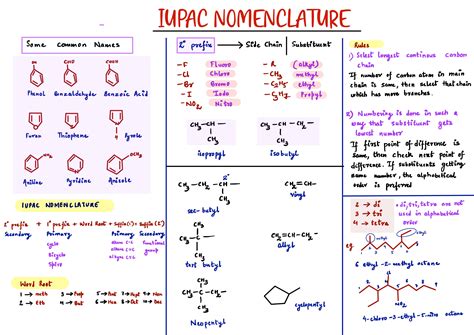 IUPAC NOMENCLATURE
Some Common Names
OH
CHO
COOH
Phenol Benzaldehyde Benzoic Acid
Furan Thiophene Pyrole
NH₂
OCH₃
Aniline Pyridine Anisole
IUPAC NOMENCLATURE
2° prefix + 1° prefix + Word Root + Suffix(1) + Suffix(2)
Secondary Primary Primary Secondary
cyclo
Bicyclo
Spiro
alkane C-C
alkene C=C
functional group
Word Root
1 → meth 3 → Prop 5 → Pent 7 → Hept 9 → Non
2 → eth 4 → But 6 → Hex 8 → Oct 10 → Dec
2° prefix → Side Chain Substituent
-F Fluoro
-Cl Chloro
-Br Bromo
-I Iodo
-NO₂ Nitro
-R (alkyl)
-CH₃ methyl
-C₂H₅ ethyl
-C₃H₇ Propyl
CH₃-CH-
CH₃
isopropyl
CH₃-CH-CH₂-
CH₃
isobutyl
CH₃-CH₂-CH-
CH₃
sec-butyl
CH₂=CH-
vinyl
CH₃
CH₃-C-
CH₃
tert butyl
allyl
CH₃
CH₃
Neopentyl
cyclopentyl
Rules
1) Select longest continous carbon
chain
If number of carbon atom in main
chain is same, then select that chain
which has more branches.
2) Numbering is done in such a
way that substituent gets
lowest number
If first point of difference is
same, then check next point of
difference. If substituents getting
same number, the alphabetical
order is preferred
2 → di
3 → tri
4 → tetra
di, tri, tetra are not
used in alphabetical
order
eg.
6 ethyl-2-methyl octane
Cl
NO₂
4-chloro-3-ethyl-5-nitro octane